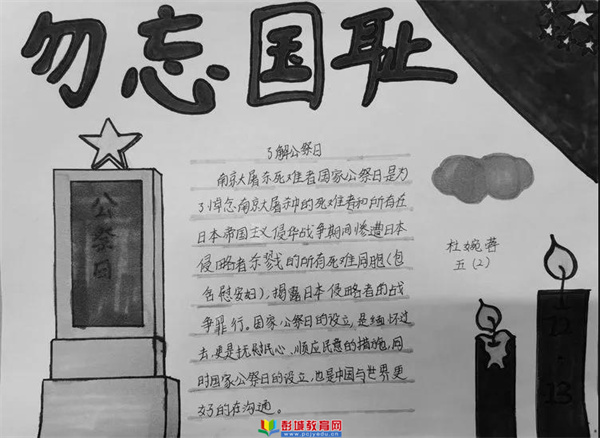 勿忘国耻
了解公祭日
南京大屠杀死难者国家公祭日是为
了悼念南京大屠杀中的死难者和所有在
日本帝国主义侵华战争期间惨遭日本
侵略者杀戮的所有死难同胞(包
含慰安妇),揭露日本侵略者的战
争罪行。国家公祭日的设立,是缅怀过
去、更是抚慰民心、顺应民意的措施,同
时国家公祭日的设立,也是中国与世界更
好的在沟通。
公祭日
杜婉蓉
五(2)
12
13
彭城教育网
www.pcjyedu.cn